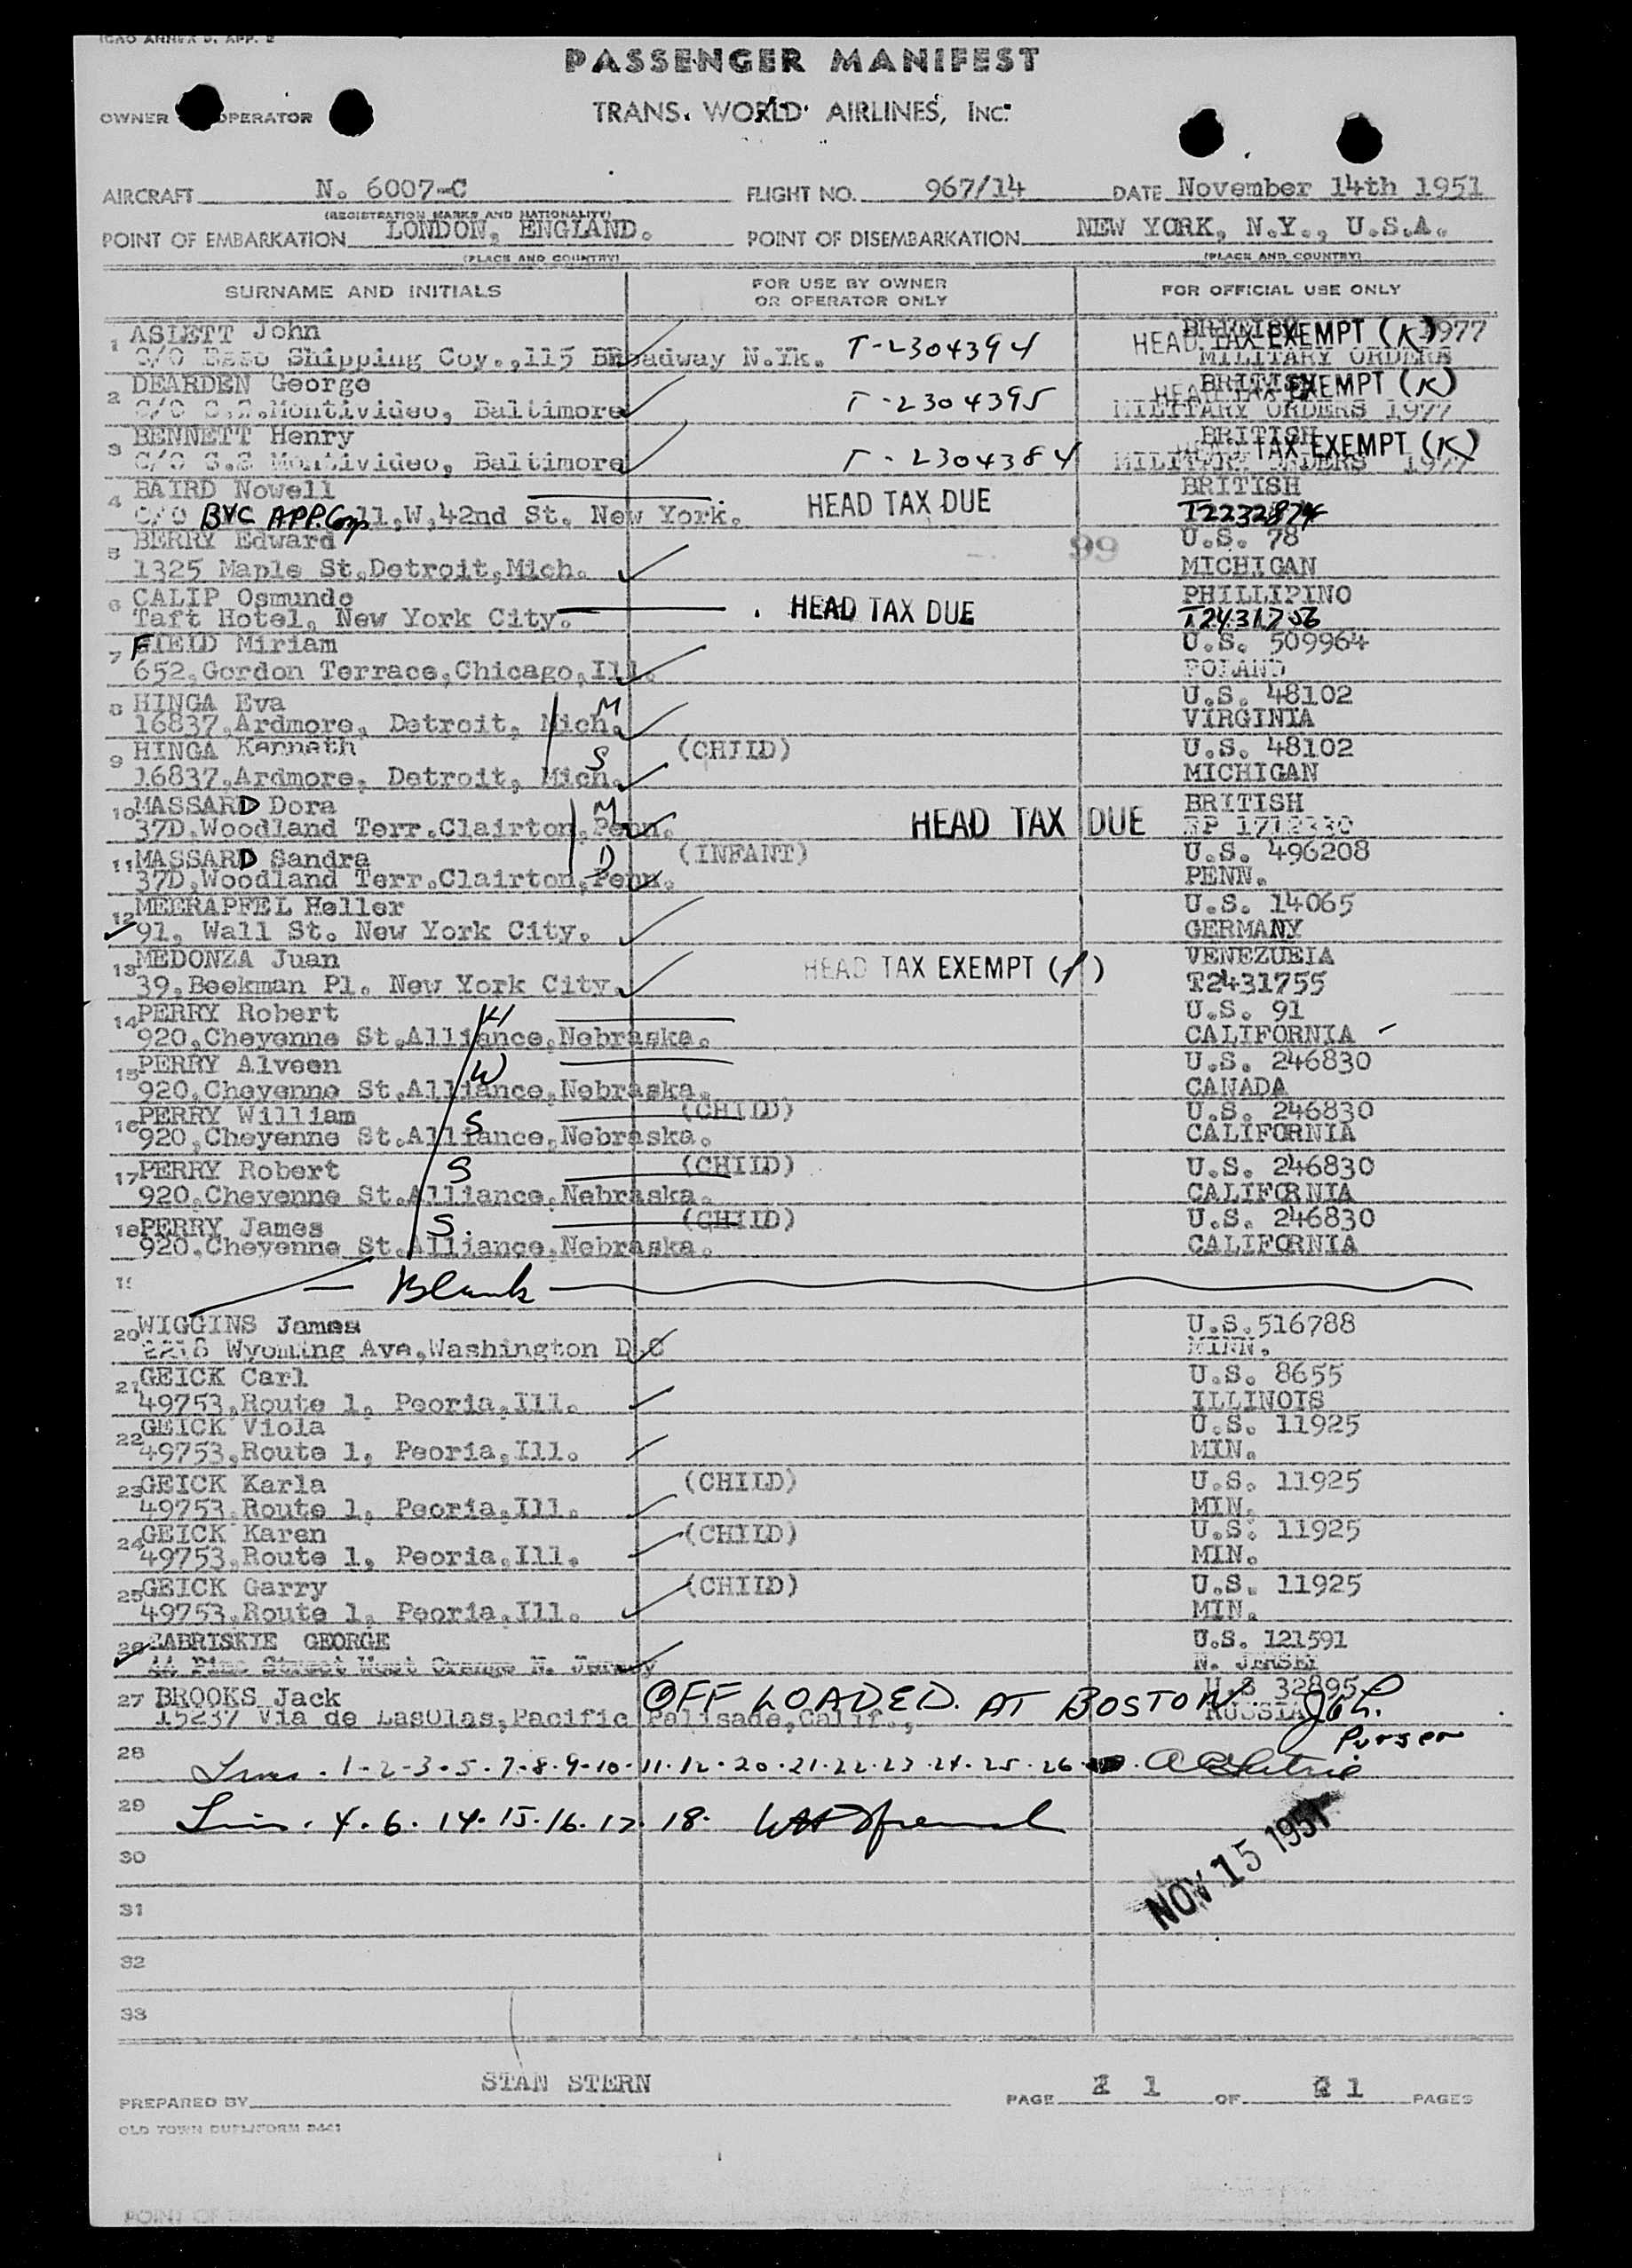 ICAO ANNEX 9, APP. 2
PASSENGER MANIFEST
OWNER OPERATOR
TRANS. WORLD AIRLINES, INC.
AIRCRAFT N. 6007-C FLIGHT NO. 967/14 DATE November 14th 1951
(REGISTRATION MARKS AND NATIONALITY)
POINT OF EMBARKATION LONDON, ENGLAND. POINT OF DISEMBARKATION NEW YORK, N.Y., U.S.A.
(PLACE AND COUNTRY) (PLACE AND COUNTRY)
SURNAME AND INITIALS FOR USE BY OWNER OR OPERATOR ONLY FOR OFFICIAL USE ONLY
1 ASLETT John BRITISH 1977
HEAD TAX EXEMPT (K)
C/O Shipping Coy.,115 Broadway N.Yk. T-2304394 MILITARY ORDERS
2 DEARDEN George BRITISH
HEAD TAX EXEMPT (K)
C/O S.S.Montivideo, Baltimore T-2304395 MILITARY ORDERS 1977
3 BENNETT Henry BRITISH
TAX EXEMPT (K)
C/O S.S Montivideo, Baltimore T-2304384 MILITARY ORDERS 1977
4 BAIRD Nowell HEAD TAX DUE BRITISH
C/O BVC APP. Corp 11,W,42nd St. New York. T2232874
5 BERRY Edward 99 U.S. 78
1325 Maple St.Detroit,Mich. MICHIGAN
6 CALIP Osmundo HEAD TAX DUE PHILLIPINO
Taft Hotel, New York City. T2431756
7 FIELD Miriam U.S. 509964
652,Gordon Terrace,Chicago,Ill. POLAND
8 HINGA Eva M U.S. 48102
16837,Ardmore, Detroit, Mich. VIRGINIA
9 HINGA Kenneth S (CHILD) U.S. 48102
16837,Ardmore, Detroit, Mich. MICHIGAN
10 MASSARD Dora M HEAD TAX DUE BRITISH
37D,Woodland Terr.Clairton,Penn. 1712330
11 MASSARD Sandra D (INFANT) U.S. 496208
37D,Woodland Terr.Clairton,Penn. PENN.
12 MEERAPFEL Heller U.S. 14065
91, Wall St. New York City. GERMANY
13 MEDONZA Juan HEAD TAX EXEMPT (f) VENEZUELA
39,Beekman Pl. New York City. T2431755
14 PERRY Robert H U.S. 91
920,Cheyenne St.Alliance,Nebraska. CALIFORNIA
15 PERRY Alveen W U.S. 246830
920,Cheyenne St.Alliance,Nebraska. CANADA
16 PERRY William S (CHILD) U.S. 246830
920,Cheyenne St.Alliance,Nebraska. CALIFORNIA
17 PERRY Robert S (CHILD) U.S. 246830
920,Cheyenne St.Alliance,Nebraska. CALIFORNIA
18 PERRY James S. (CHILD) U.S. 246830
920,Cheyenne St.Alliance,Nebraska. CALIFORNIA
19 — Blank —
20 WIGGINS James U.S.516788
2218 Wyoming Ave,Washington D.C MINN.
21 GEICK Carl U.S. 8655
49753,Route 1, Peoria,Ill. ILLINOIS
22 GEICK Viola U.S. 11925
49753,Route 1, Peoria,Ill. MIN.
23 GEICK Karla (CHILD) U.S. 11925
49753,Route 1, Peoria,Ill. MIN.
24 GEICK Karen (CHILD) U.S. 11925
49753,Route 1, Peoria,Ill. MIN.
25 GEICK Garry (CHILD) U.S. 11925
49753,Route 1, Peoria,Ill. MIN.
26 ZABRISKIE GEORGE U.S. 121591
44 Pine Street West Orange N. Jersey N. JERSEY
27 BROOKS Jack OFF LOADED. AT BOSTON U.S 32895
15237 Via de LasOlas,Pacific Palisade,Calif., RUSSIA
Purser
28 Lines. 1-2-3-5-7-8-9-10-11-12-20-21-22-23-24-25-26
29 Lines. 4. 6. 14. 15. 16. 17. 18.
NOV 15 1951
30
31
32
33
PREPARED BY STAN STERN PAGE 1 OF 1 PAGES
OLD TOWN DUPLIFORM